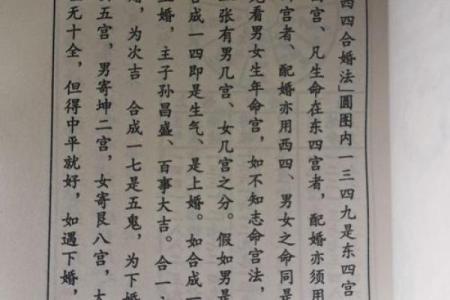 西四合婚法」圓图内一三四九是东四宫
宫、凡生命在东四宫者，配婚亦须用
宫者、配婚亦用西四、男女之命同是
看男女生年命宫，如不知志命宫法，
张有男几宫、女几宫之分。假如男是
合成一四即是生气、是上婚。如合成一
婚，主子孙昌盛、百事大吉。合一
，为次吉 合成一七是五鬼，为下婚
五宫，男寄坤二宫，女寄艮八宫，大
无十全，但得中平就好，如遇下婚，